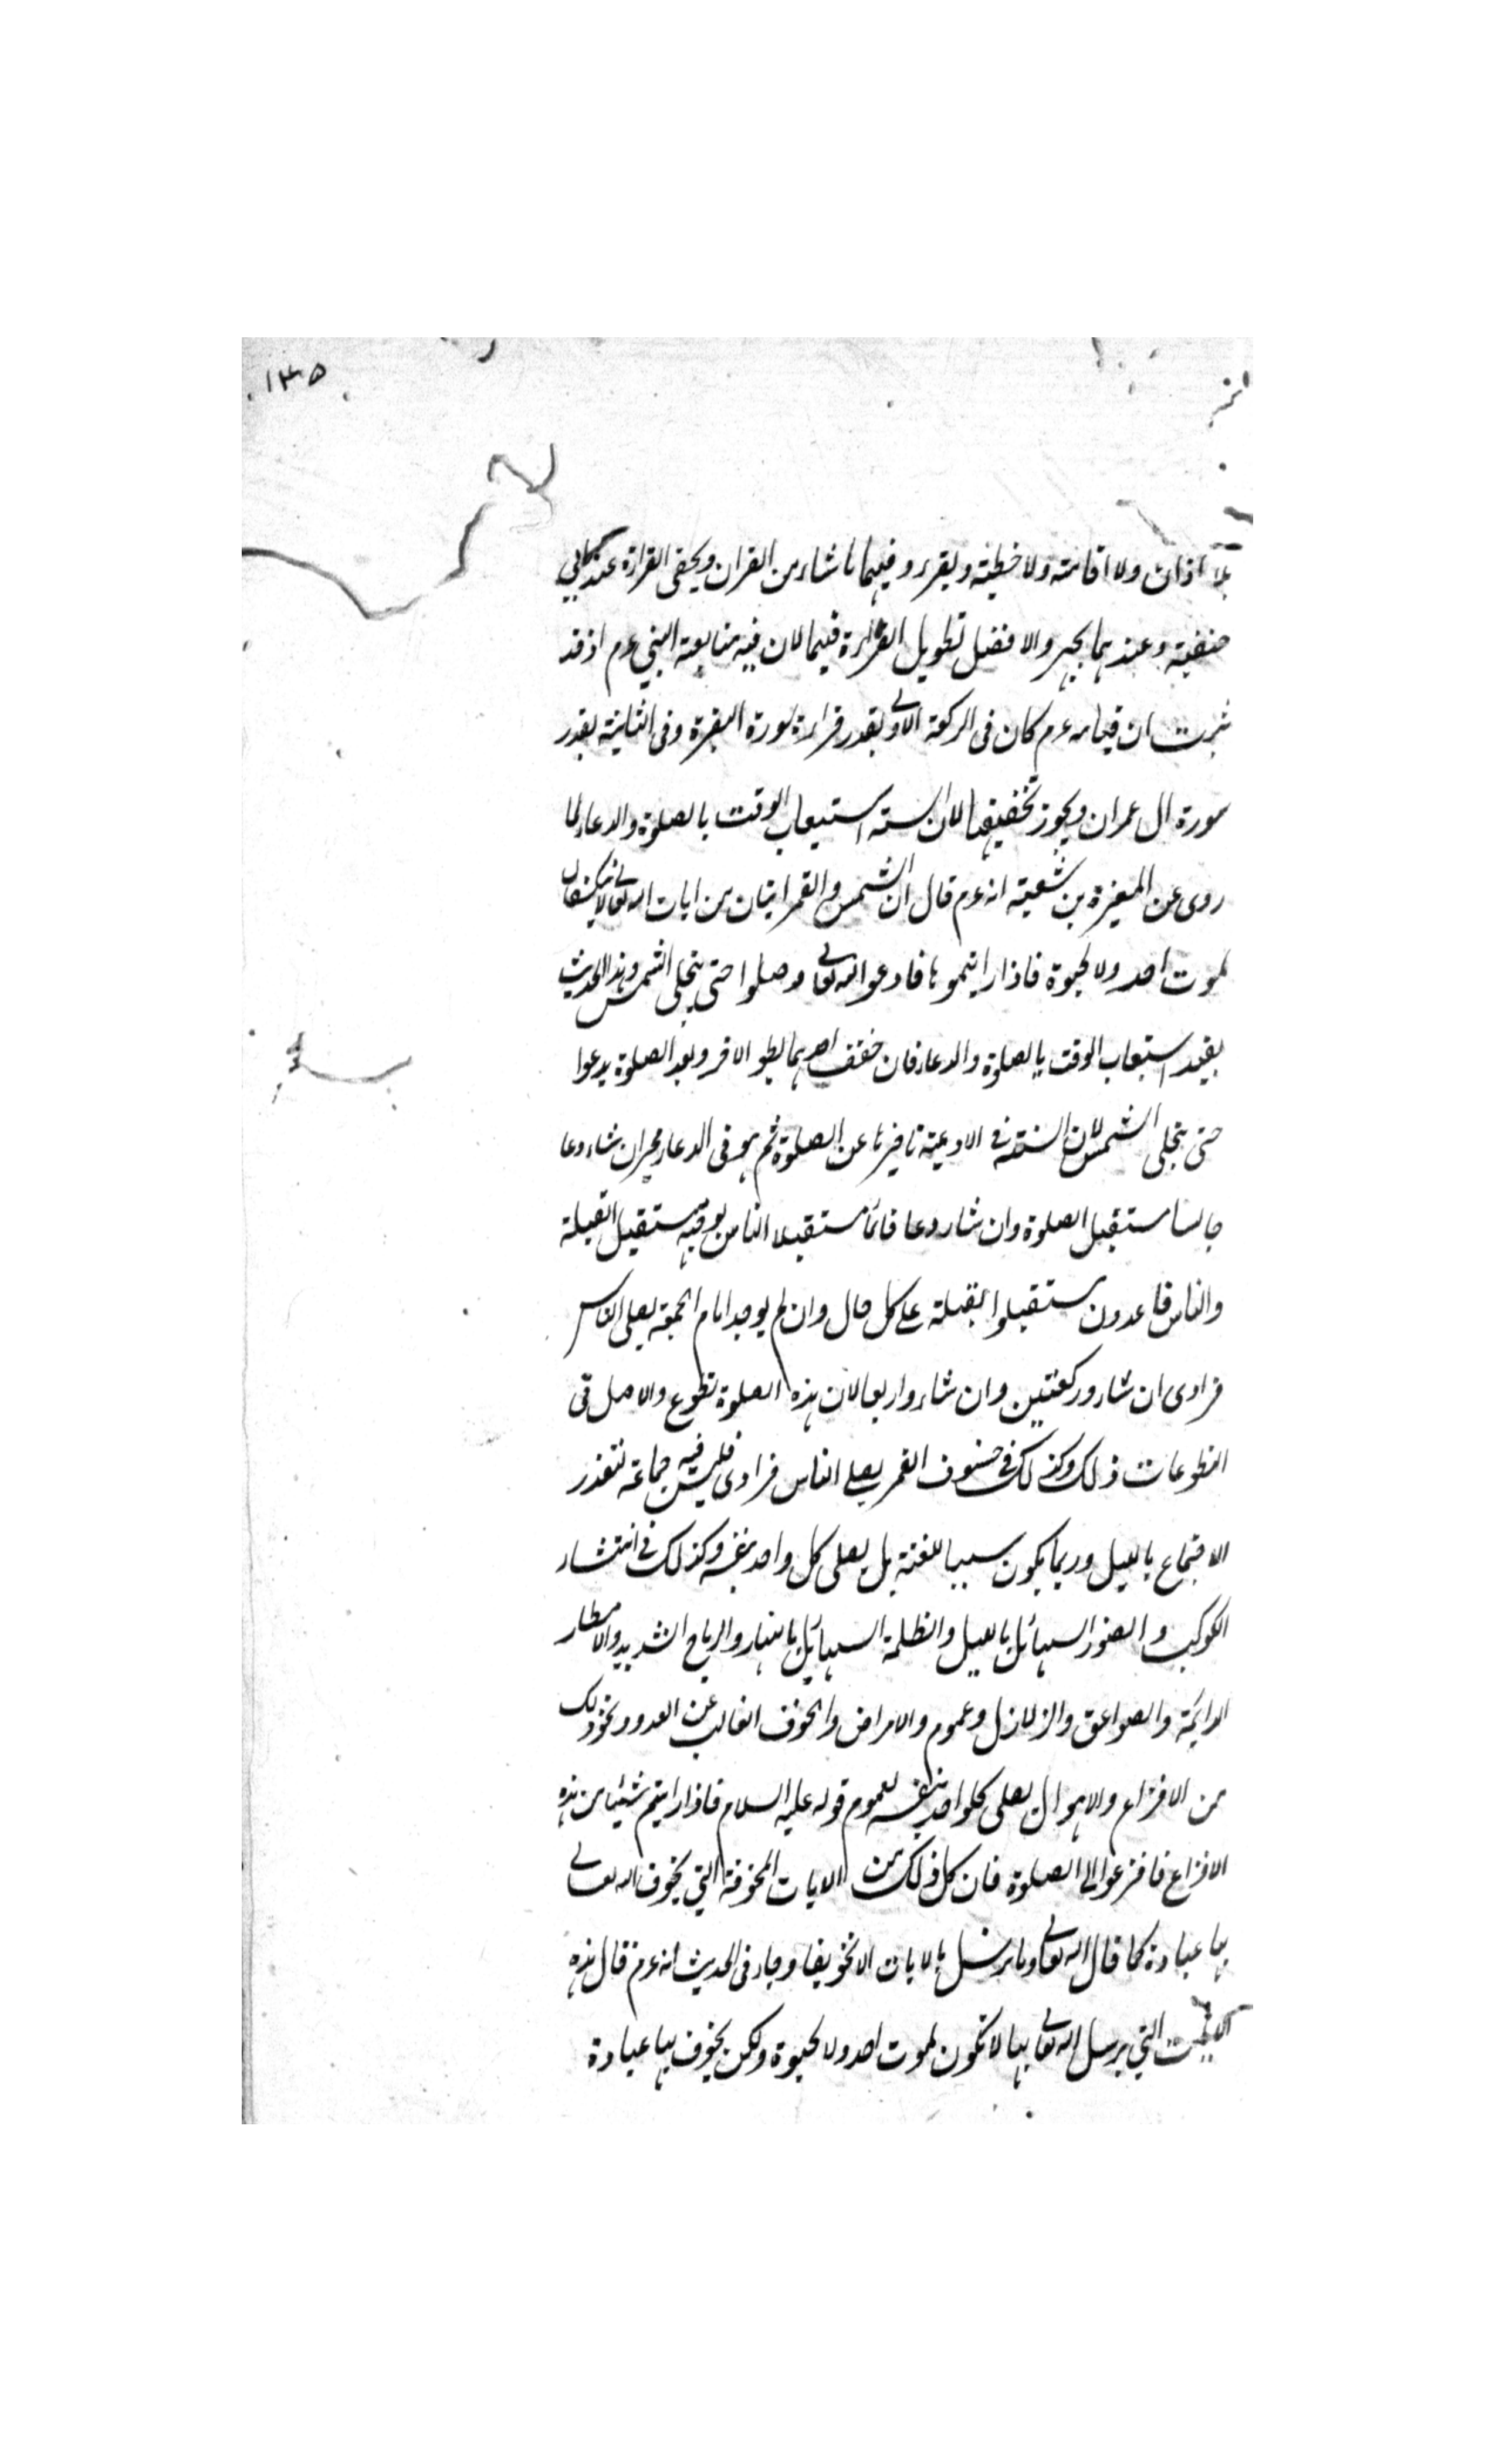 ١٣٥
بلا اذان ولا اقامته ولا خطبته ويقرء وفيهما ما شاء من القران ويخفى القراءة عند ابي
حنيفة وعندهما يجهر والافضل تطويل القراءة فيهما لان فيه متابعة النبي ءم اذ قد
ثبت ان قيامه ءم كان فى الركعة الاولى بقدر قراءة سورة البقرة وفى الثانية بقدر
سورة ال عمران ويجوز تخفيفها لان السنة استيعاب الوقت بالصلوة والدعاء لما
روى عن المغيرة بن شعبة انه ءم قال ان الشمس والقمر ايتان من ايات الله تعالى لا ينكسفان
لموت احد ولا لحيوة فاذا رايتموها فادعوا الله تعالى وصلوا حتى ينجلى الشمس وهذا الحديث
يفيد استيعاب الوقت بالصلوة والدعاء فان خفف احدهما يطول الاخر وبعد الصلوة يدعوا
حتى ينجلى الشمس لان السنة فى الادعية تاخيرها عن الصلوة ثم هو فى الدعاء مخير ان شاء دعا
جالسا مستقبل الصلوة وان شاء دعا قائما مستقبلا الناس بوجهه مستقبل القبلة
والناس قاعدون مستقبلوا القبلة على كل حال وان لم يوجد امام الجمعة يصلى الناس
فرادى ان شاء وركعتين وان شاء واربعا لان هذه الصلوة تطوع والاصل فى
التطوعات ذلك وكذلك فى خسوف القمر يصلى الناس فرادى فليس فيه جماعة لتعذر
الاجتماع بالليل وربما يكون سببا للفتنة بل يصلى كل واحد بنفسه وكذلك فى انتشار
الكوكب والضوء السهائل بالليل والظلمة السهائل بالنهار والرياح الشديد والامطار
الدايمة والصواعق والزلازل وعموم والامراض والخوف الغالب عن العدو ونحو ذلك
من الافزاع والاهوال يصلى كلواحد بنفسه لعموم قوله عليه السلام فاذا رايتم شيئا من هذه
الافزاع فافزعوا الى الصلوة فان كل ذلك من الايات المخوفة التي يخوف الله تعالى
بها عبادة كما قال الله تعالى وما نرسل بالايات الا تخويفا وجاء فى الحديث انه ءم قال هذه
الايات التي يرسل الله تعالى بها لا تكون لموت احد ولا لحيوة ولكن يخوف بها عبادة